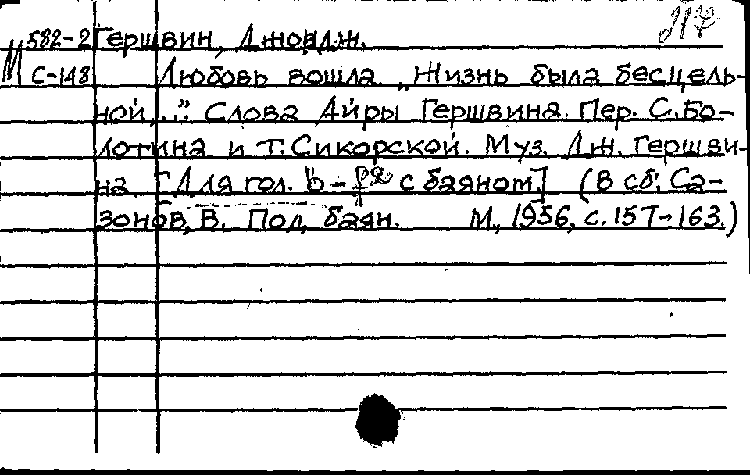 М 582-2 Гершвин, Джордж.
С-148 Любовь вошла. „Жизнь была бесцель-
ной...". Слова Айры Гершвина. Пер. С. Бо-
лотина и Т. Сикорской. Муз. Дж. Гершви-
на. [Для гол. b - f² с баяном] (В сб: Са-
зонов, В. Пол. баян. М., 1956, с. 157-163.)